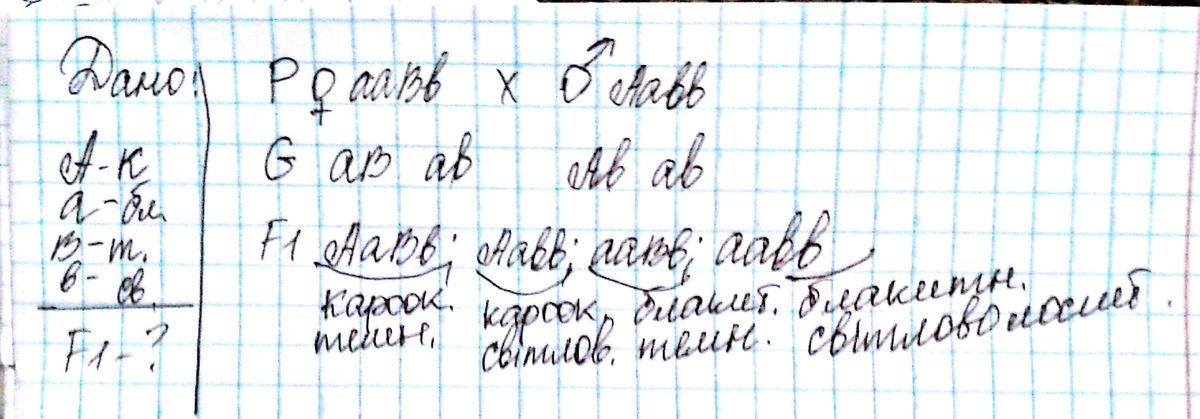 Дано:
А - к
а - бл.
В - т.
в - св.
F1 - ?
P ♀ ааВв х ♂ Аавв
G аВ ав Ав ав
F1 АаВв; Аавв; ааВв; аавв
кароок. кароок. блакит. блакитн.
темн. світлов. темн. світловолосит.